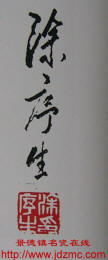 徐亭生
景德镇名瓷在线
http://www.jdzmc.com